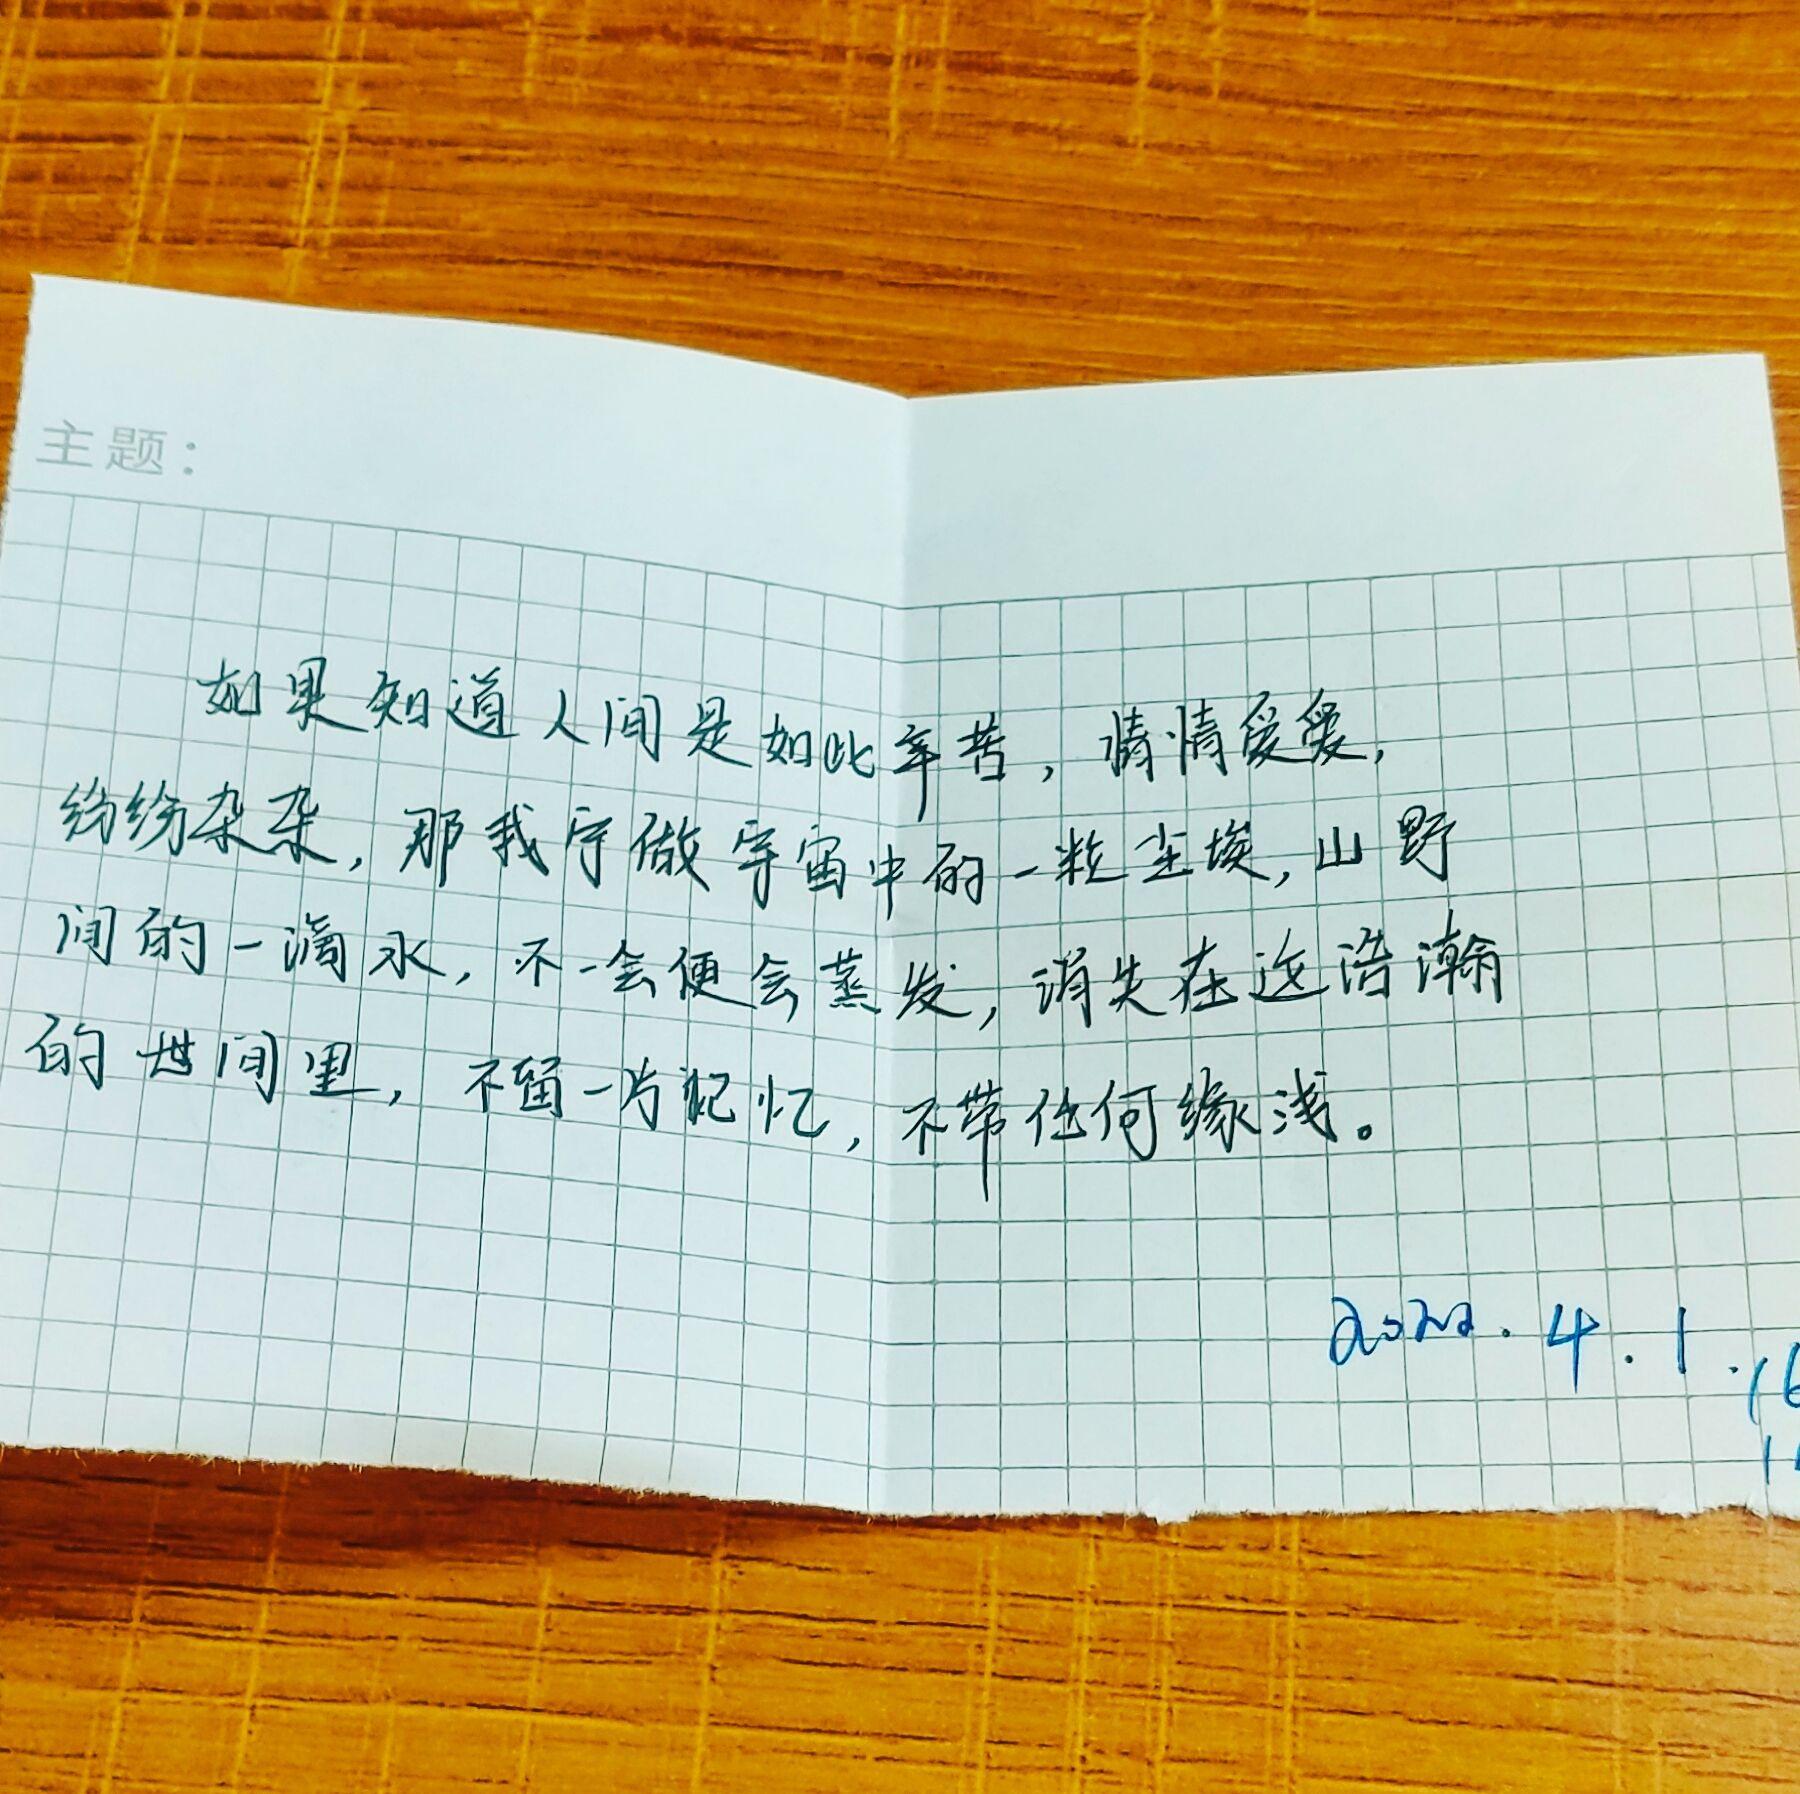 主题：
如果知道人间是如此辛苦，情情爱爱，
纷纷杂杂，那我宁做宇宙中的一粒尘埃，山野
间的一滴水，不一会便会蒸发，消失在这浩瀚
的世间里，不留一片记忆，不带任何缘浅。
2022.4.1.16